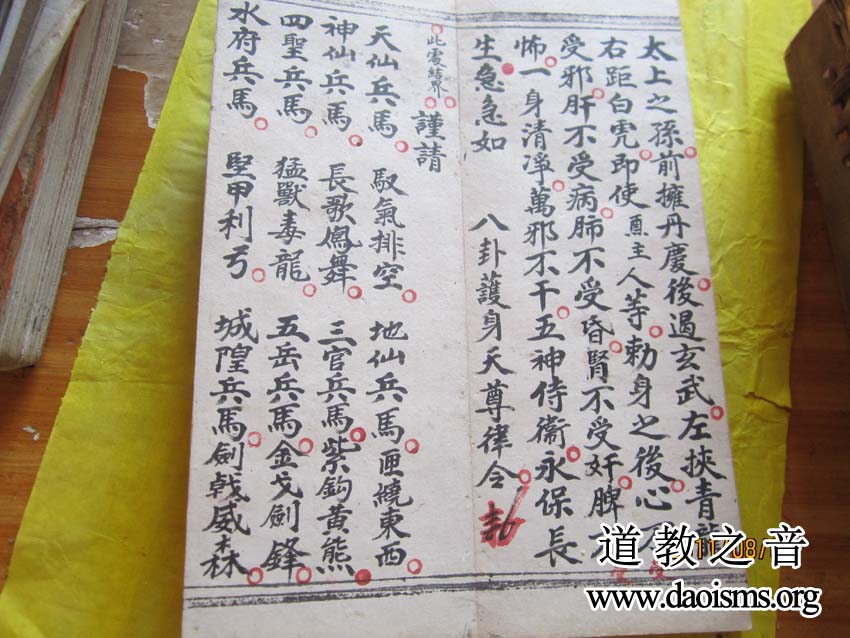 太上之孫前擁丹慶後過玄武左挾青龍
右距白虎即使主人等勅身之後心不
受邪肝不受病肺不受昏腎不受奸脾不
怖一身清淨萬邪不干五神侍衛永保長
生急急如 八卦護身天尊律令
此處結界 謹請
天仙兵馬 馭氣排空 地仙兵馬匝繞東西
神仙兵馬 長歌鳳舞 三官兵馬紫鈎黃熊
四聖兵馬 猛獸毒龍 五岳兵馬金戈劍鋒
水府兵馬 堅甲利弓 城隍兵馬劍戟威森
道教之音
www.daoisms.org